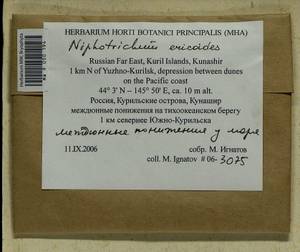 HERBARIUM HORTI BOTANICI PRINCIPALIS (MHA)
Niphotrichum ericoides
Russian Far East, Kuril Islands, Kunashir
1 km N of Yuzhno-Kurilsk, depression between dunes
on the Pacific coast
44° 3' N – 145° 50' E, ca. 10 m alt.
Россия, Курильские острова, Кунашир
междюнные понижения на тихоокеанском берегу
1 км севернее Южно-Курильска
междюнные понижения у моря
11.IX.2006
собр. М. Игнатов
coll. M. Ignatov # 06-3075